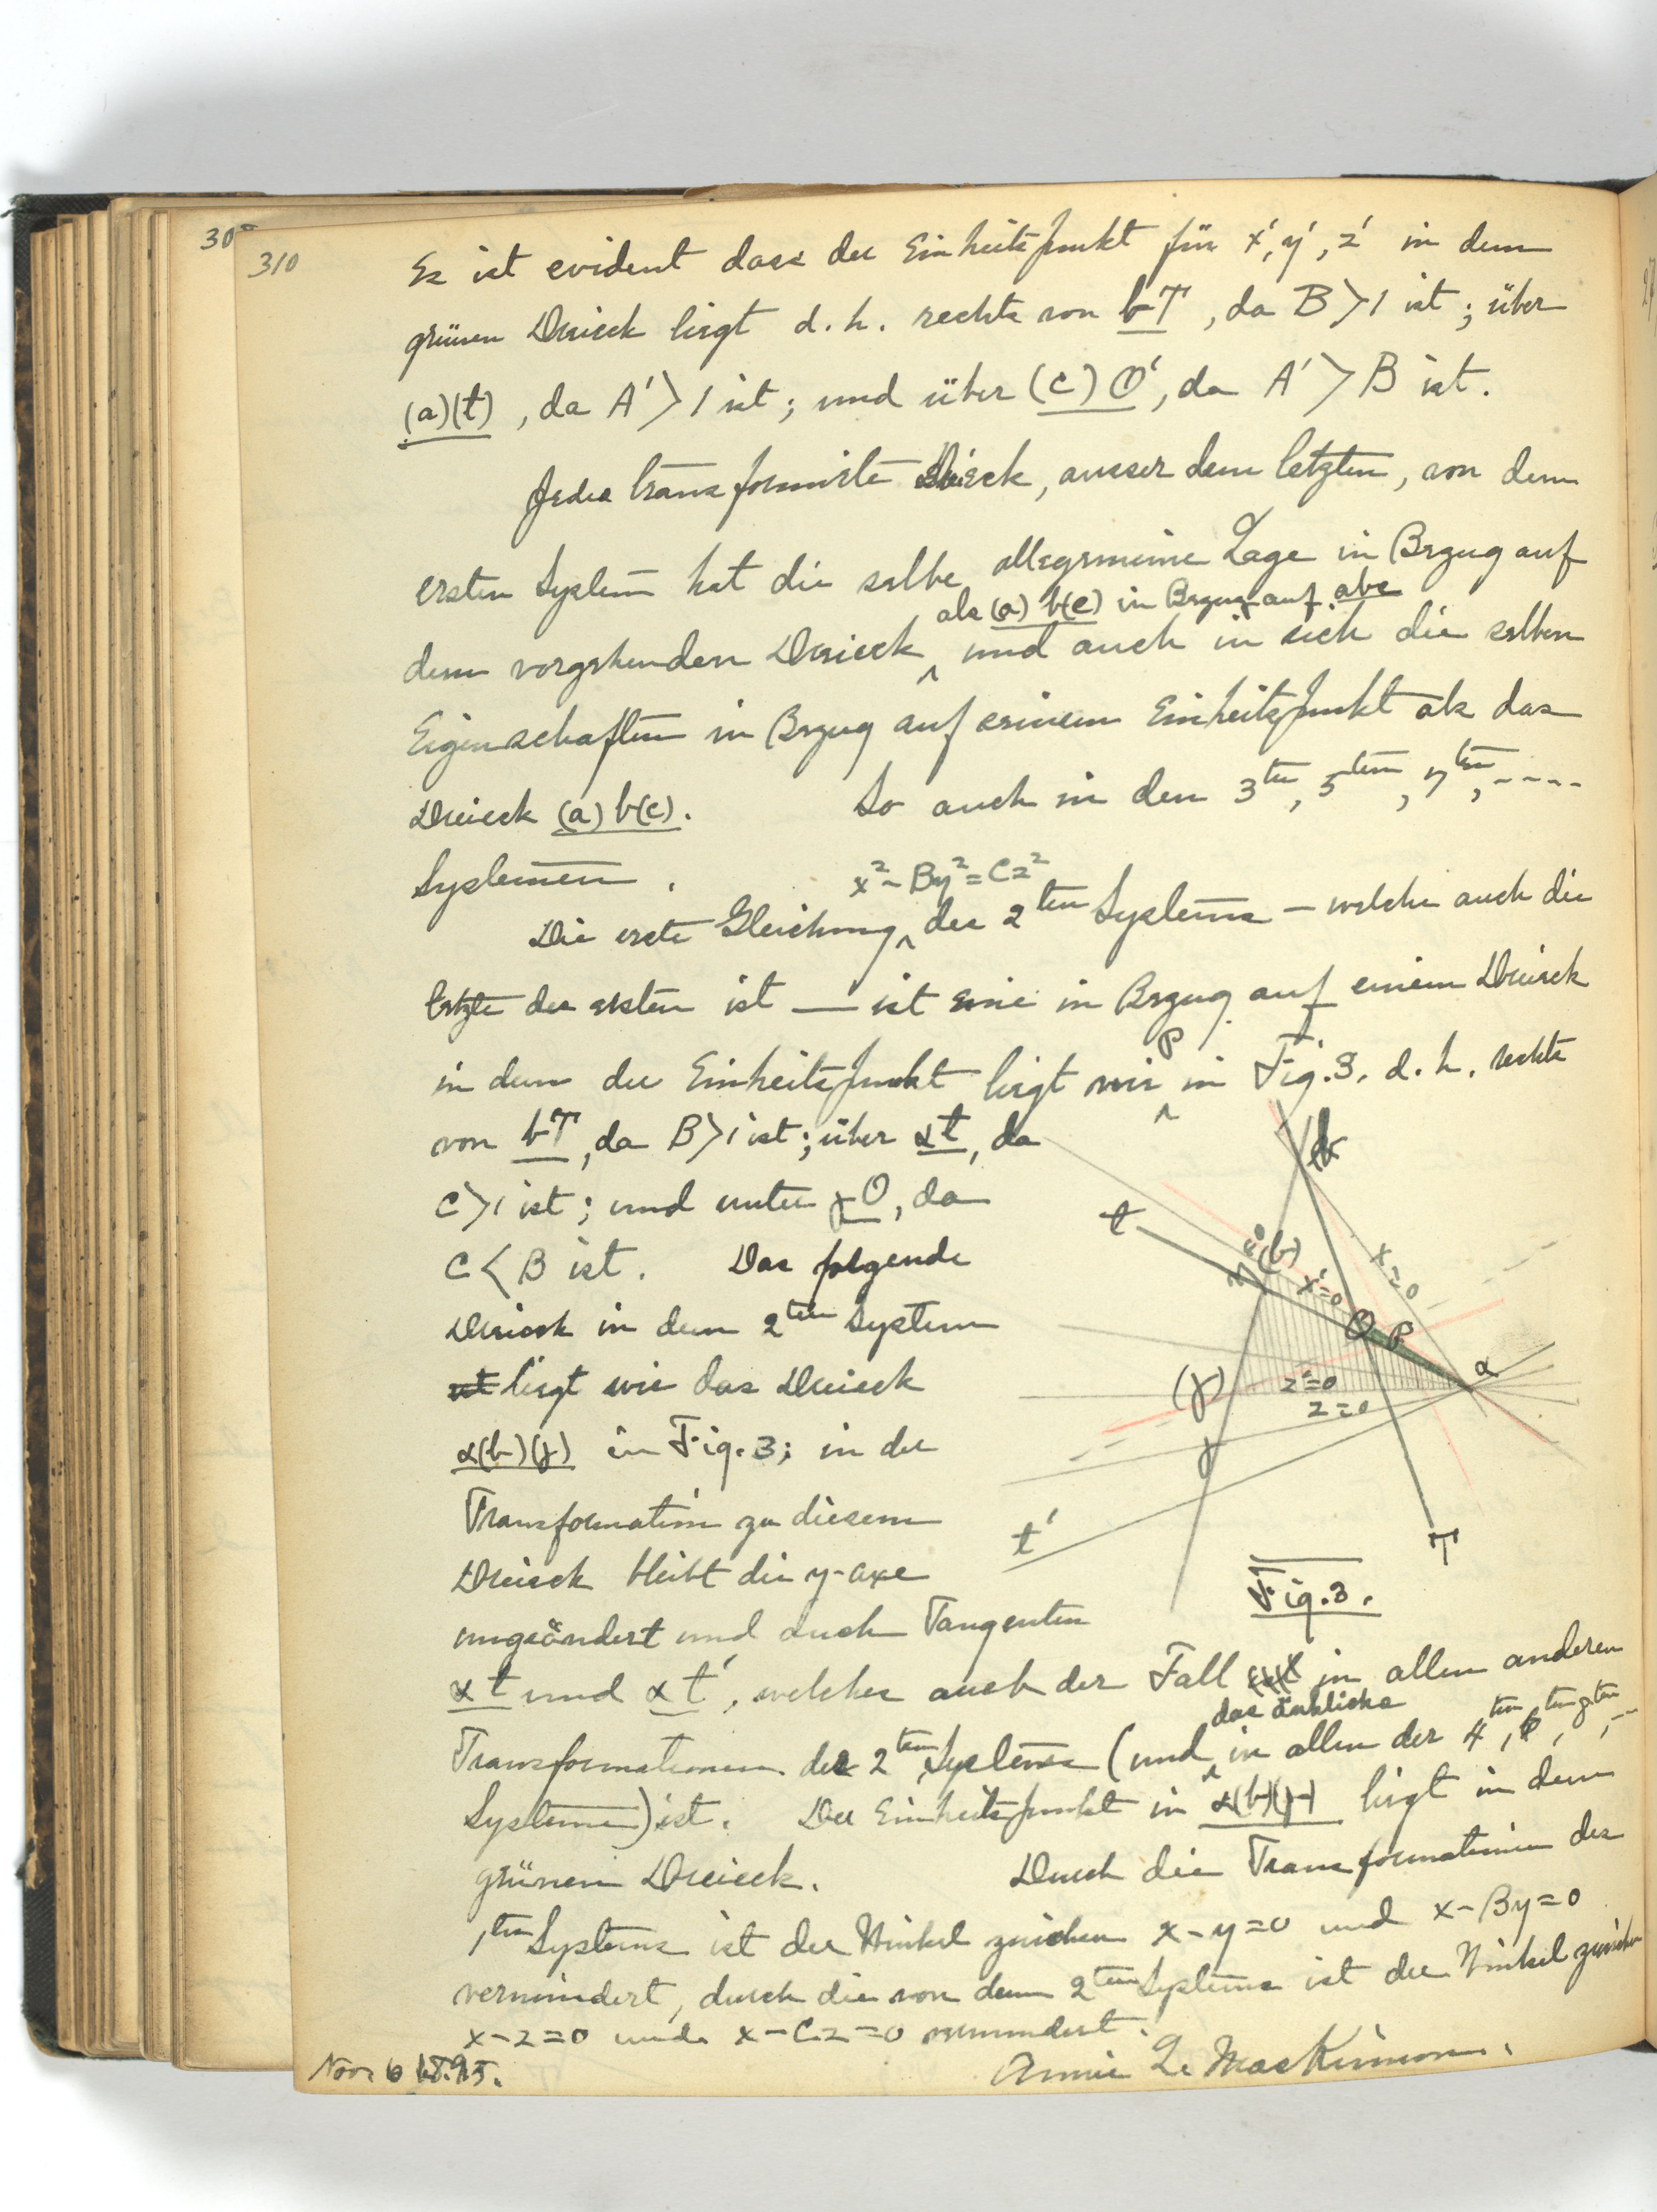 310
Es ist evident dass der Einheitspunkt für x', y', z' in dem
grünen Dreieck liegt d. h. rechts von bT, da B > 1 ist; über
(a)(t), da A' > 1 ist; und über (c) O', da A' > B ist.
Jedes transformirte Dreieck, ausser dem letzten, von dem
ersten System hat die selbe allegemeine Lage in Bezug auf
als (a) b(c) in Bezug auf abc
dem vorgehenden Dreieck ‸ und auch in sich die selben
Eigenschaften in Bezug auf seinem Einheitspunkt als das
Dreieck (a) b(c). So auch in den 3ten, 5ten, 7ten, ----
Systemen.
x² - By² = Cz²
Die erste Gleichung ‸ des 2ten Systems — welche auch die
letzte des ersten ist — ist eine in Bezug auf einem Dreieck
in dem der Einheitspunkt liegt wie ‸ P in Fig. 3. d. h. rechts
von bT, da B > 1 ist; über αt, da
C > 1 ist; und unter γO, da
C < B ist. Das folgende
Dreieck in dem 2ten System
liegt wie das Dreieck
α(b)(γ) in Fig. 3; in der
Transformation zu diesem
Dreieck bleibt die y-axe
ungeändert und auch Tangenten
αt und αt', welches auch der Fall in allen anderen
das änliche
Transformationen des 2ten Systems (und ‸ in allen der 4ten, 6ten, 8ten, --
Systeme) ist. Der Einheitspunkt in α(b)(γ) liegt in dem
grünen Dreieck. Durch die Transformationen des
1ten Systems ist der Winkel zwischen x - y = 0 und x - By = 0
vermindert, durch die von dem 2ten Systems ist der Winkel zwischen
x - z = 0 und x - Cz = 0 vermindert.
Nov. 6 1895.
Annie L. MacKinnon.
b
t
(b)
x=0
x'=0
O
P
α
(γ)
z'=0
z=0
γ
t'
T
Fig. 3.